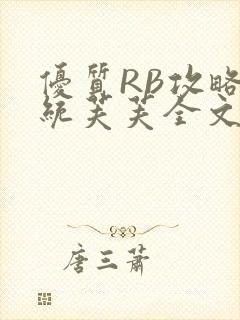 優質RB攻略
統芙芙全文
唐三蕭